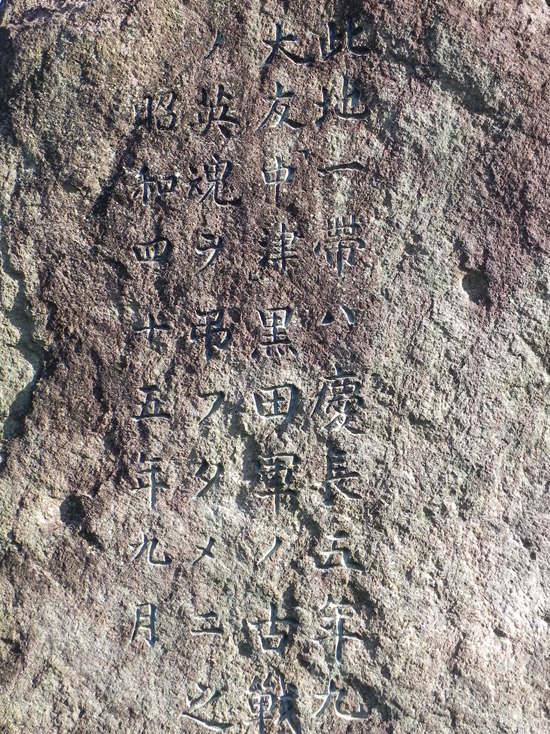 此地一帯ハ慶長五年九
大友「中津」黒田軍ノ古戦
ノ英魂ヲ吊フタメニ之
昭和四十五年九月